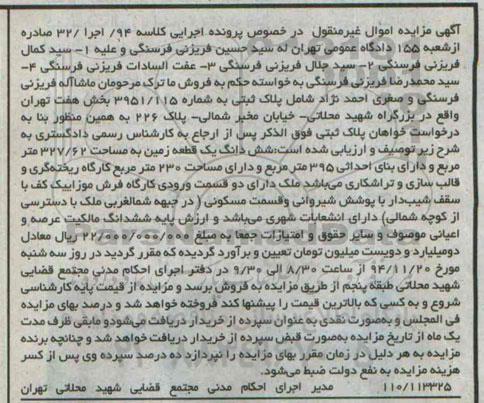 آگهی مزایده اموال غیرمنقول در خصوص پرونده اجرایی کلاسه ۹۴/ اجرا /۳۲ صادره
ازشعبه ۱۵۵ دادگاه عمومی تهران له سید حسین فریزنی فرسنگی و علیه ۱- سید کمال
فریزنی فرسنگی ۲- سید جلال فریزنی فرسنگی ۳- عفت السادات فریزنی فرسنگی ۴-
سید محمدرضا فریزنی فرسنگی به خواسته حکم به فروش ما ترک مرحومان ماشااله فریزنی
فرسنگی و صغری احمد نژاد شامل پلاک ثبتی به شماره ۳۹۵۱/۱۱۵ بخش هفت تهران
واقع در بزرگراه شهید محلاتی- خیابان مخبر شمالی- پلاک ۲۲۶ به همین منظور بنا به
درخواست خواهان پلاک ثبتی فوق الذکر پس از ارجاع به کارشناس رسمی دادگستری به
شرح زیر توصیف و ارزیابی شده است:شش دانگ یک قطعه زمین به مساحت ۳۲۷/۶۲ متر
مربع و دارای بنای احداثی ۳۹۵ متر مربع و دارای مساحت ۲۳۰ متر مربع کارگاه ریخته‌گری و
قالب سازی و تراشکاری می‌باشد ملک دارای دو قسمت ورودی کارگاه فرش موزاییک کف با
سقف شیب‌دار با پوشش شیروانی وقسمت مسکونی ( در جبهه شمالغربی ملک با دسترسی
از کوچه شمالی) دارای انشعابات شهری می‌باشد و ارزش پایه ششدانگ مالکیت عرصه و
اعیانی موصوف و سایر حقوق و امتیازات جمعا به مبلغ ۲۲/۰۰۰/۰۰۰/۰۰۰ ریال معادل
دومیلیارد و دویست میلیون تومان تعیین و برآورد گردیده که مقرر گردید در روز سه شنبه
مورخ ۹۴/۱۱/۲۰ از ساعت ۸/۳۰ الی ۹/۳۰ در دفتر اجرای احکام مدنی مجتمع قضایی
شهید محلاتی طبقه پنجم از طریق مزایده به فروش برسد و مزایده از قیمت پایه کارشناسی
شروع و به کسی که بالاترین قیمت را پیشنهاد کند فروخته خواهد شد و درصد بهای مزایده
فی المجلس و به‌صورت نقدی به عنوان سپرده از خریدار دریافت می‌شودو مابقی ظرف مدت
یک ماه از تاریخ مزایده به‌صورت قبض سپرده از خریدار دریافت خواهد شد و چنانچه برنده
مزایده به هر دلیل در زمان مقرر بهای مزایده را نپردازد ده درصد سپرده وی پس از کسر
هزینه مزایده به نفع دولت ضبط می‌شود.
۱۱۰/۱۱۳۳۲۵ مدیر اجرای احکام مدنی مجتمع قضایی شهید محلاتی تهران